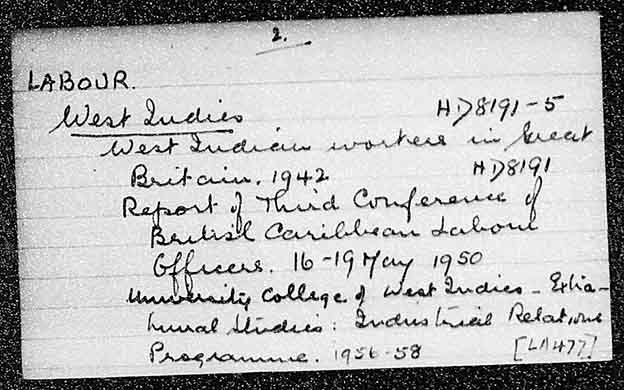 2.
LABOUR.
West Indies HD8191-5
West Indian workers in Great
Britain. 1942 HD8191
Report of Third Conference of
British Caribbean Labour
Officers. 16-19 May 1950
University College of West Indies - Extra-
mural Studies: Industrial Relations
Programme. 1956-58 [LA477]